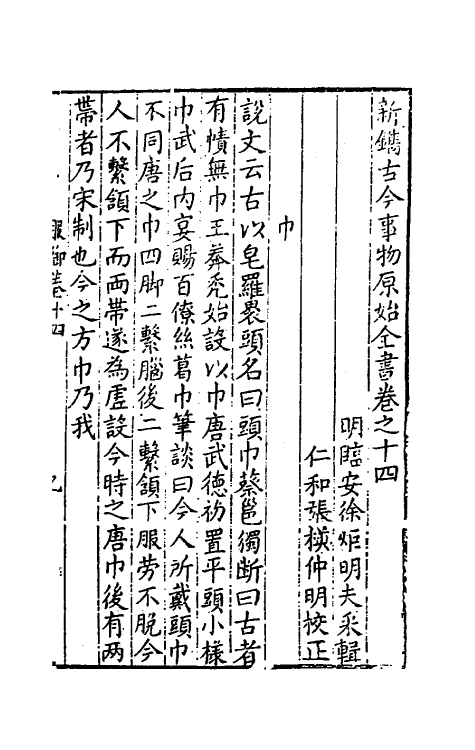 新鐫古今事物原始全書卷之十四
明臨安徐炬明夫采輯
仁和張模仲明校正
巾
說文云古以皂羅裹頭名曰頭巾蔡邕獨斷曰古者
有幘無巾王莽禿始設以巾唐武德初置平頭小樣
巾武后內宴賜百僚絲葛巾筆談曰今人所戴頭巾
不同唐之巾四脚二繫腦後二繫頷下服劳不脫今
人不繫頷下而兩帶遂為虛設今時之唐巾後有两
帶者乃宋制也今之方巾乃我
服御卷十四